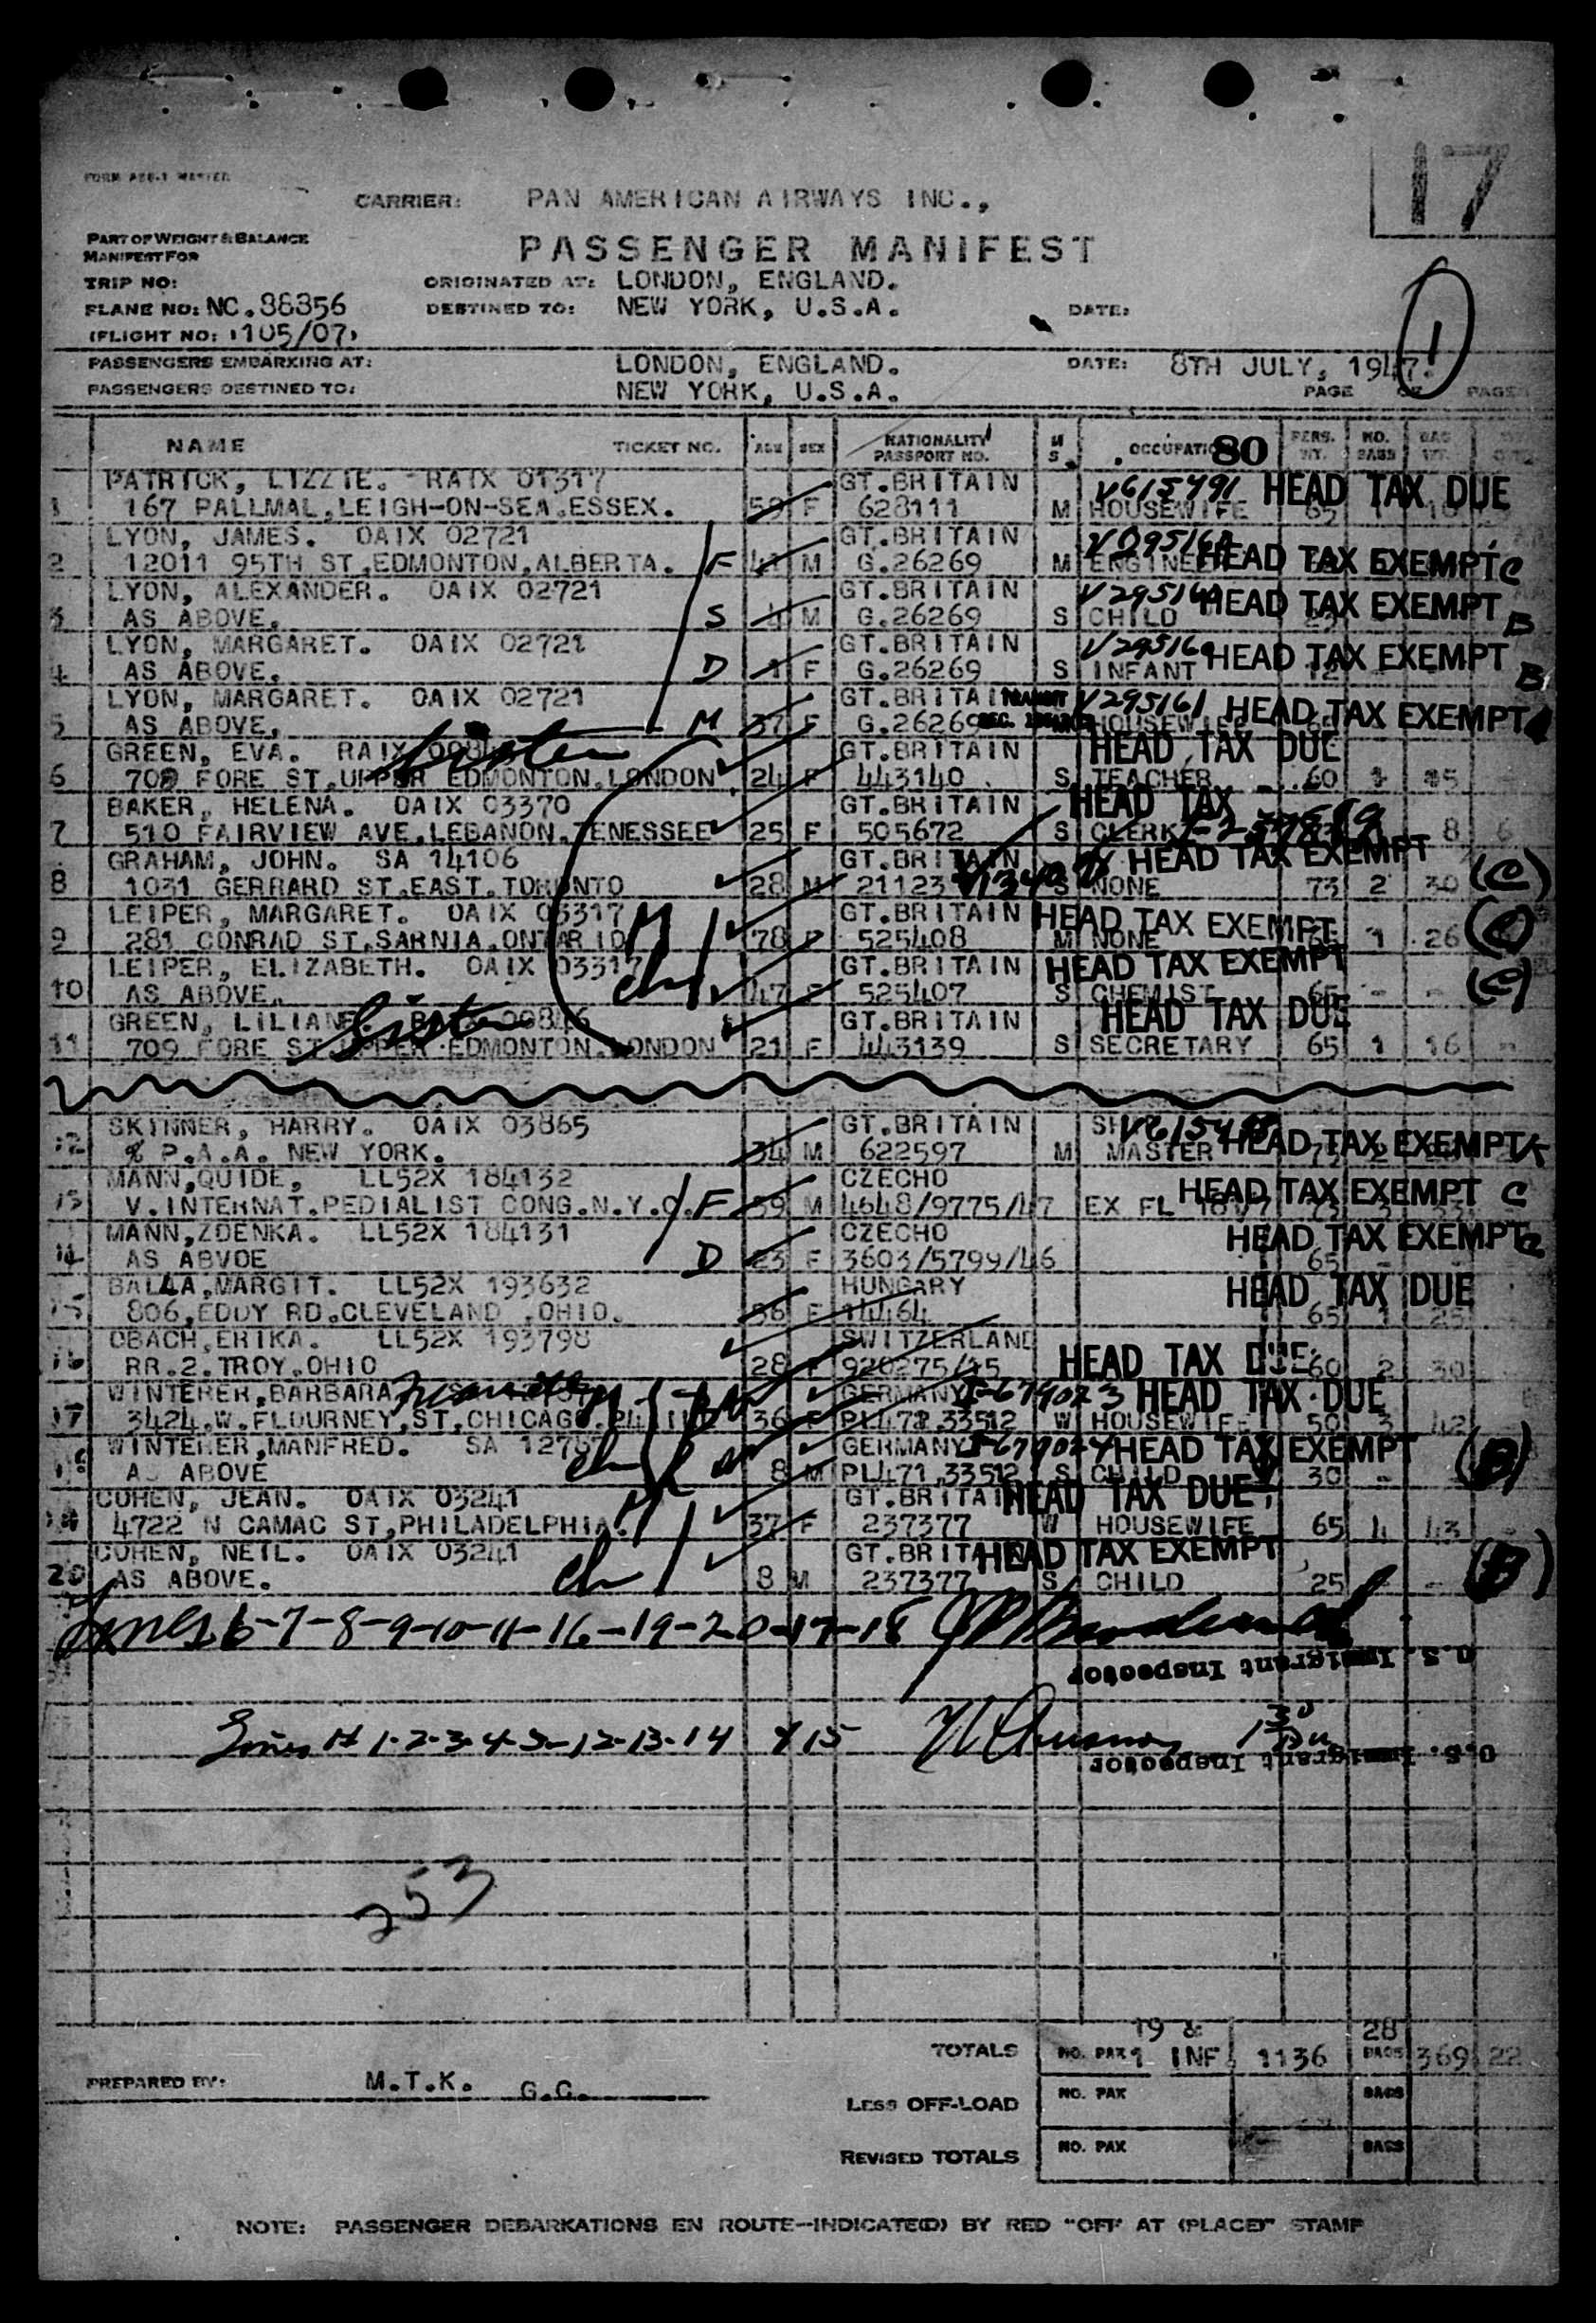 17
FORM
CARRIER: PAN AMERICAN AIRWAYS INC.,
PART OF WEIGHT & BALANCE
MANIFEST FOR
PASSENGER MANIFEST
TRIP NO: ORIGINATED AT: LONDON, ENGLAND.
PLANE NO: NC.88856 DESTINED TO: NEW YORK, U.S.A. DATE:
(FLIGHT NO: 105/07)
1
PASSENGERS EMBARKING AT: LONDON, ENGLAND. DATE: 8TH JULY, 1947.
PASSENGERS DESTINED TO: NEW YORK, U.S.A. PAGE OF PAGES
NAME TICKET NO. AGE SEX NATIONALITY PASSPORT NO. M S. OCCUPATION 80 PERS. WT. NO. BAGS BAG WT.
PATRICK, LIZZIE. RAIX 01317 GT.BRITAIN V615491 HEAD TAX DUE
1 167 PALLMAL,LEIGH-ON-SEA.ESSEX. 59 F 628111 M HOUSEWIFE 65
LYON, JAMES. OAIX 02721 GT.BRITAIN
2 12011 95TH ST,EDMONTON,ALBERTA. F 41 M G.26269 M ENGINEER HEAD TAX EXEMPT C
LYON, ALEXANDER. OAIX 02721 GT.BRITAIN
3 AS ABOVE. S 4 M G.26269 S CHILD HEAD TAX EXEMPT B
LYON, MARGARET. OAIX 02721 GT.BRITAIN
4 AS ABOVE. D 1 F G.26269 S INFANT HEAD TAX EXEMPT B
LYON, MARGARET. OAIX 02721 GT.BRITAIN TRANSIT V295161
5 AS ABOVE. M 37 F G.26269 HOUSEWIFE HEAD TAX EXEMPT
GREEN, EVA. RAIX Sister GT.BRITAIN HEAD TAX DUE
6 709 FORE ST.UPPER EDMONTON.LONDON 24 F 443140 S TEACHER 60 1 15
BAKER, HELENA. OAIX 03370 GT.BRITAIN HEAD TAX
7 510 FAIRVIEW AVE.LEBANON.TENESSEE 25 F 505672 S CLERK 8 6
GRAHAM, JOHN. SA 14106 GT.BRITAIN HEAD TAX EXEMPT
8 1031 GERRARD ST.EAST.TORONTO 28 M 21123 S NONE 73 2 30 (C)
LEIPER, MARGARET. OAIX 03317 M GT.BRITAIN HEAD TAX EXEMPT
9 281 CONRAD ST.SARNIA.ONTARIO 78 F 525408 M NONE 1 26 (C)
LEIPER, ELIZABETH. OAIX 03317 GT.BRITAIN HEAD TAX EXEMPT
10 AS ABOVE. ch 47 F 525407 S CHEMIST 65 - - (C)
GREEN, LILIANE. 00846 Sister GT.BRITAIN HEAD TAX DUE
11 709 FORE ST.UPPER EDMONTON.LONDON 21 F 443139 S SECRETARY 65 1 16
SKINNER, HARRY. OAIX 03865 GT.BRITAIN
12 % P.A.A. NEW YORK. 34 M 622597 M MASTER HEAD TAX EXEMPT
MANN,QUIDE, LL52X 184132 CZECHO HEAD TAX EXEMPT C
13 V.INTERNAT.PEDIALIST CONG.N.Y.C. F 59 M 4648/9775/47 EX FL
MANN,ZDENKA. LL52X 184131 CZECHO HEAD TAX EXEMPT
14 AS ABVOE D 23 F 3603/5799/46 65
BALLA,MARGIT. LL52X 193632 HUNGARY HEAD TAX DUE
15 806,EDDY RD.CLEVELAND,OHIO. 36 F 14464 65 1 25
OBACH,ERIKA. LL52X 193798 SWITZERLAND
16 RR.2.TROY.OHIO 28 F 920275/45 HEAD TAX DUE 60 2 30
WINTERER,BARBARA GERMANY HEAD TAX DUE
17 3424.W.FLOURNEY,ST,CHICAGO.24 36 F 33512 W HOUSEWIFE 50 3 42
WINTERER,MANFRED. SA GERMANY HEAD TAX EXEMPT
18 AS ABOVE ch 8 M PL471,33512 S CHILD 30 - (B)
COHEN, JEAN. OAIX 03241 M GT.BRITAIN HEAD TAX DUE
19 4722 N CAMAC ST,PHILADELPHIA. 37 F 237377 W HOUSEWIFE 65 4 43
COHEN, NEIL. OAIX 03241 GT.BRITAIN HEAD TAX EXEMPT
20 AS ABOVE. ch 8 M 237377 S CHILD 25 - - (B)
Lines 6-7-8-9-10-11-16-19-20-17-18
U.S. Immigrant Inspector
Lines # 1-2-3-4-5-12-13-14 & 15
U.S. Immigrant Inspector
253
TOTALS NO. PAX 19 & 1 INF 1136 28 BAGS 369 22
PREPARED BY: M.T.K. G.C.
LESS OFF-LOAD NO. PAX BAGS
REVISED TOTALS NO. PAX BAGS
NOTE: PASSENGER DEBARKATIONS EN ROUTE--INDICATE(D) BY RED "OFF AT (PLACE)" STAMP